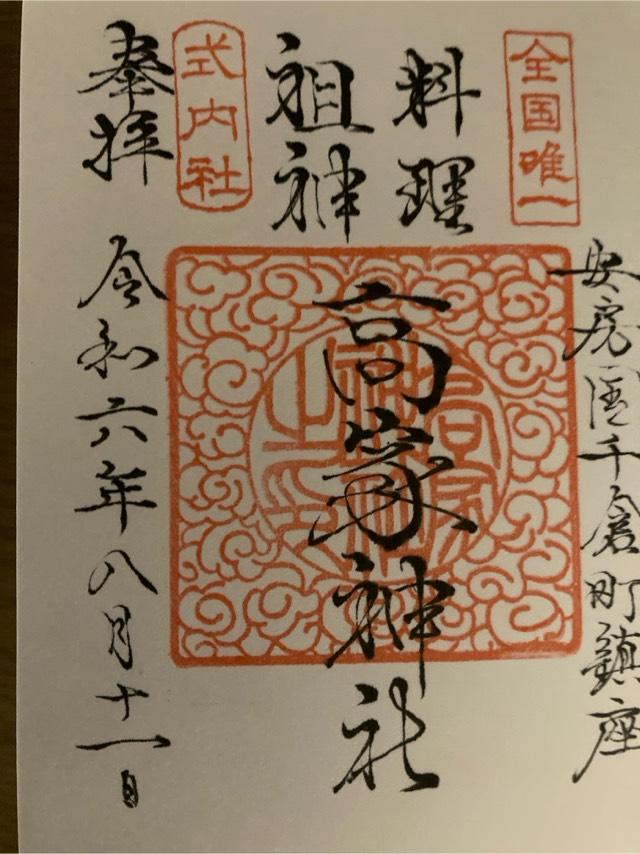 安房国千倉町鎮座
全国唯一
料理
祖神
高家神社
式内社
奉拝
令和六年八月十一日